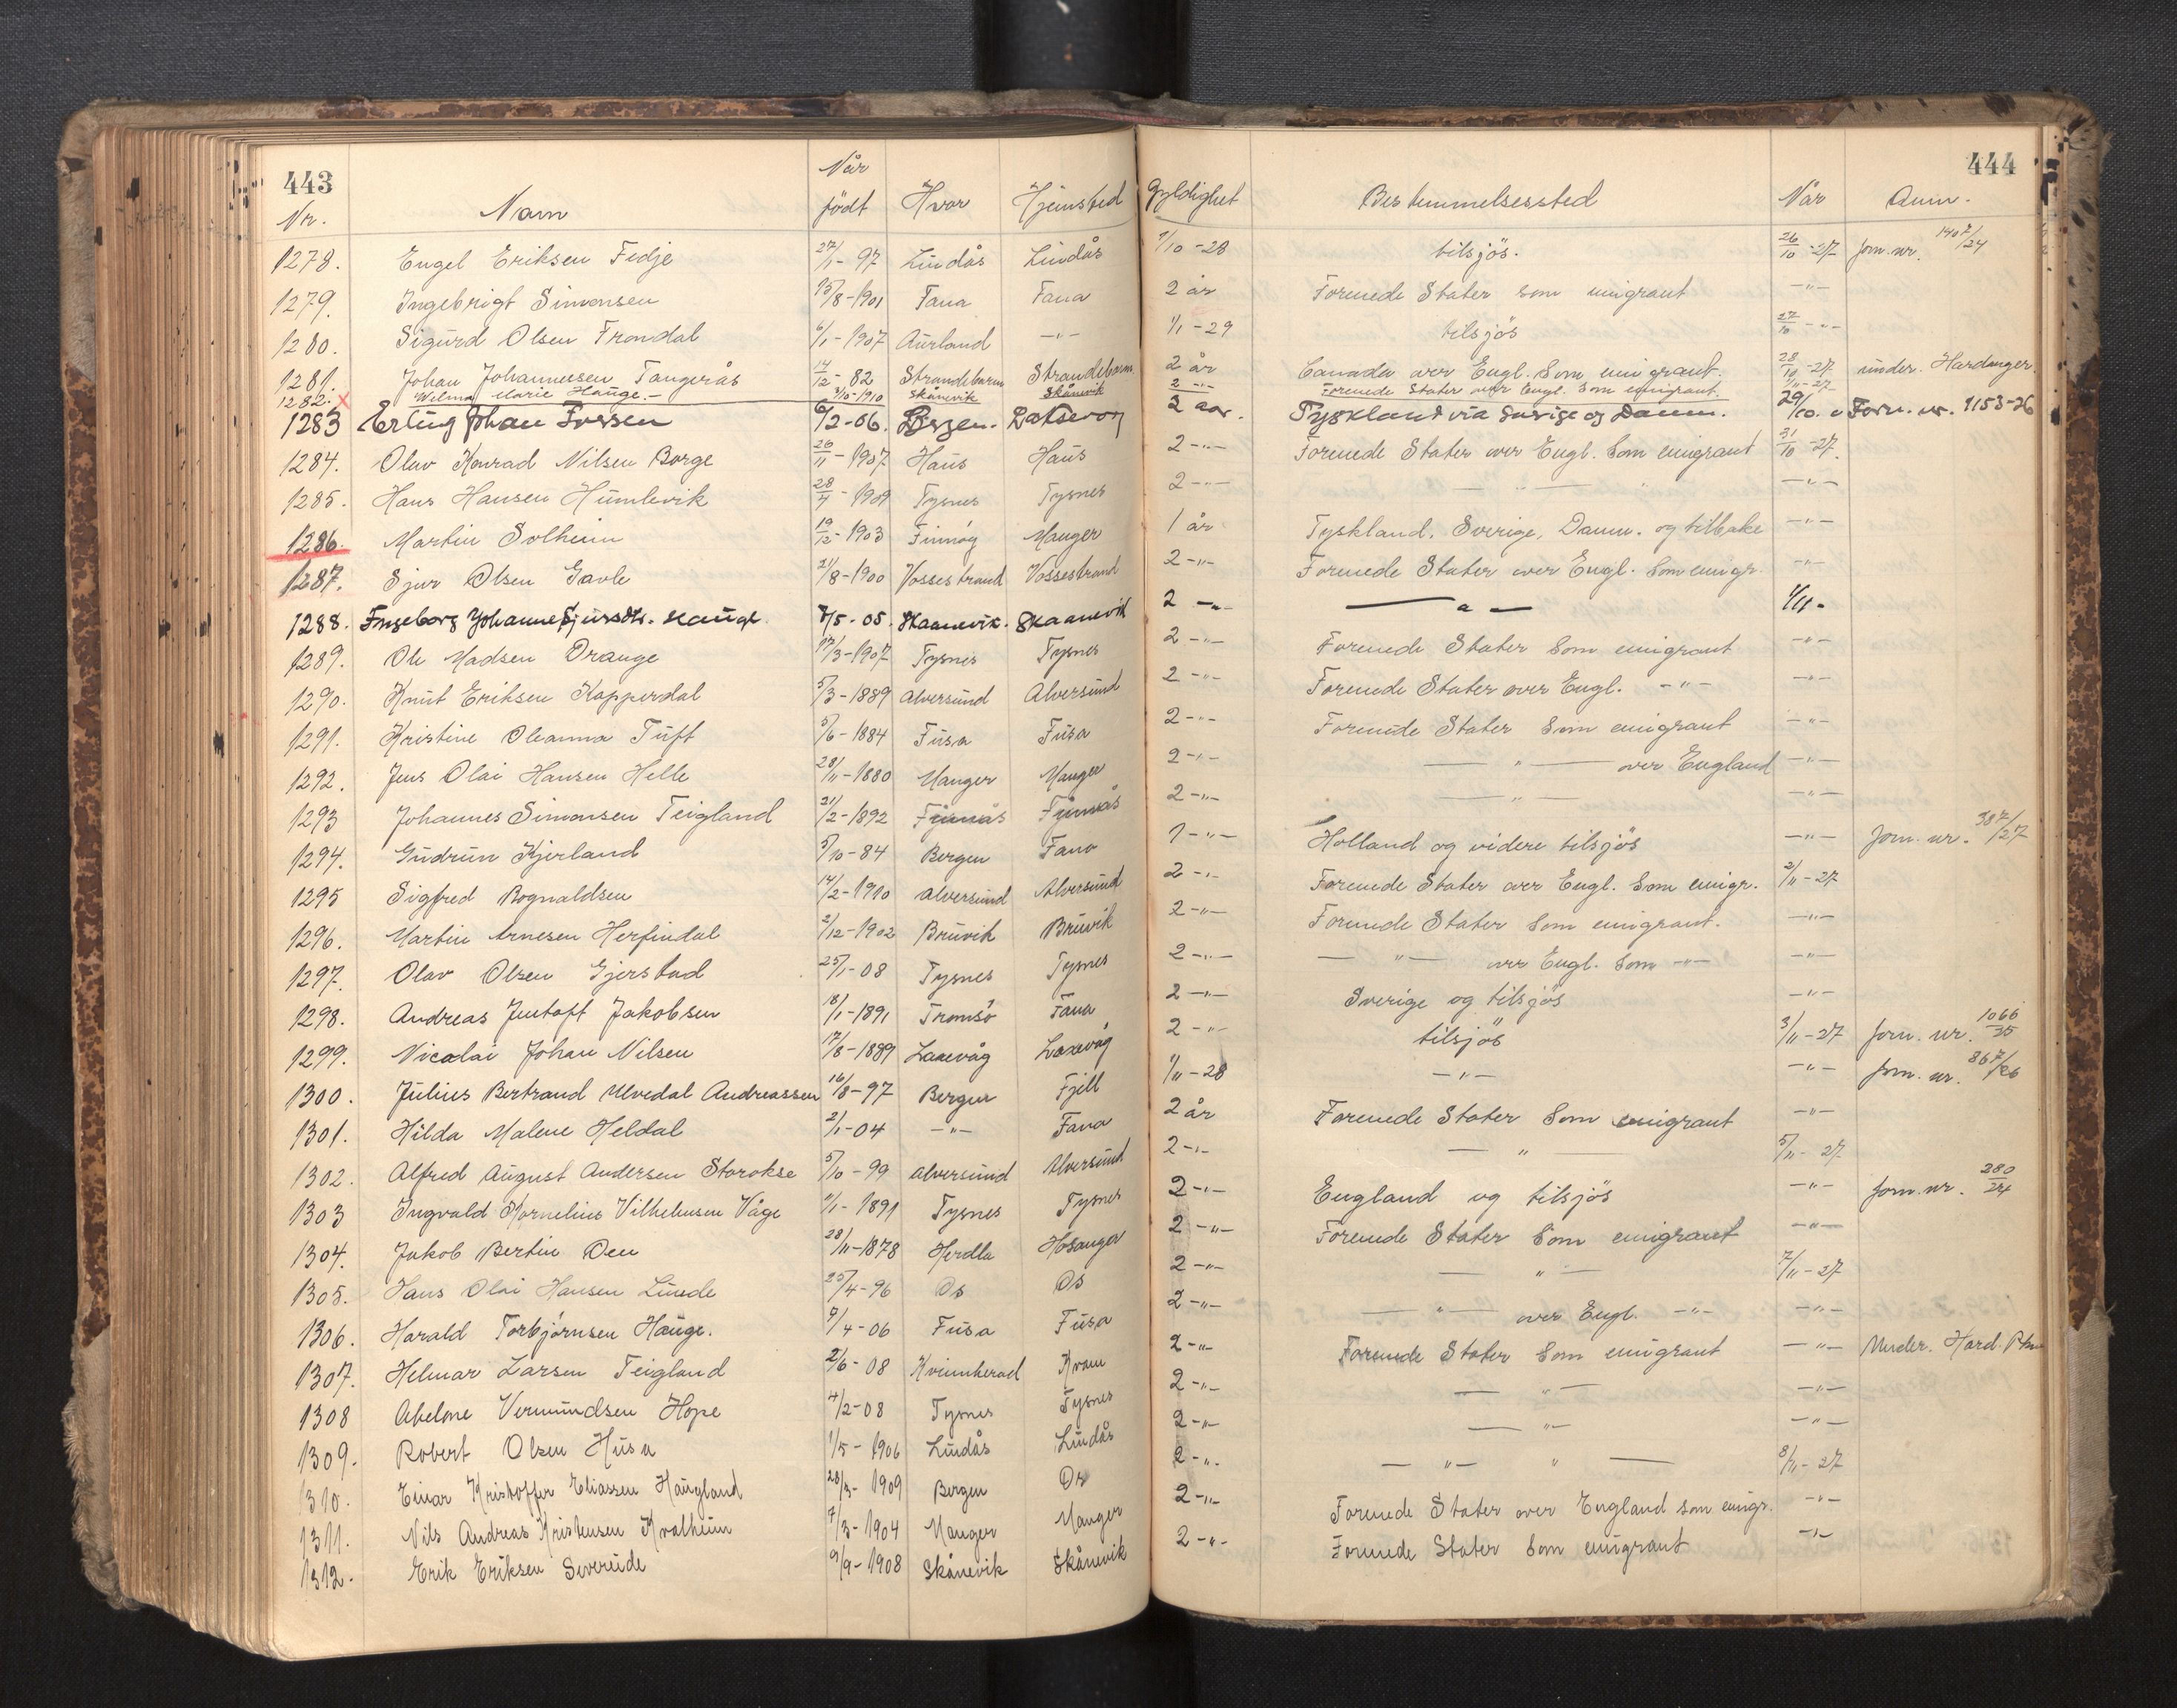 443
444
Nr. Navn Når födt Hvor Hjemsted Gyldighet Bestemmelsessted Når Anm.
1278. Engel Eriksen Fedje 27/1-97 Lindås Lindås 1/10-28 tilsjös. 26/10-27 forn. nr. 1407/24
1279. Ingebrigt Simonsen 15/8-1901 Fana Fana 2 år Forenede Stater som emigrant -"-
1280. Sigurd Olsen Frondal 6/1-1907 Aurland -"- 1/1-29 tilsjös 27/10 -"-
1281. Johan Johannesen Tangerås 14/12-82 Strandebarm Strandebarm 2 år Canada over Engl. som emigrant. 28/10-27 under. Hardanger.
1282. x Wilma Marie Hauge.- 3/10-1910 Skånevik Skånevik 2 -"- Forenede Stater over Engl. som emigrant. 1/11-27
1283 Erling Johan Fossen 6/2-06. Bergen. 2 aar. Tyskland via Sverige og Danm. 29/10. Forn. nr. 1153-26
1284. Olav Konrad Nilsen Borge 26/11-1907 Haus Haus 2-"- Forenede Stater over Engl. som emigrant 31/10-27.
1285. Hans Hansen Humlevik 28/4-1909 Tysnes Tysnes 2-"- -"- -"-
1286. Martin Solheim 19/12-1903 Finnöy Manger 1 år Tyskland, Sverige, Danm. og tilbake -"-
1287. Sjur Olsen Gavle 21/8-1900 Vossestrand Vossestrand 2-"- Forenede Stater over Engl. som emigr. -"-
1288. Ingeborg Johanne Sjursdtr. Haugl. 8/5-05. Skaanevik. Skaanevik 2 -"- -"- 1/11-
1289. Ole Madsen Drange 17/3-1907 Tysnes Tysnes 2-"- Forenede Stater som emigrant -"-
1290. Knut Eriksen Kopperdal 5/3-1889 Alversund Alversund 2-"- Forenede Stater over Engl. -"- -"-
1291. Kristine Oleanna Tuft 5/6-1884 Fusa Fusa 2-"- Forenede Stater som emigrant -"-
1292. Jens Olai Hansen Helle 28/11-1880 Manger Manger 2-"- -"- over England -"-
1293 Johannes Simonsen Teigland 21/2-1892 Finnås Finnås 2-"- -"- -"-
1294. Gudrun Kjerland 5/10-84 Bergen Fana 1-"- Holland og videre tilsjös -"- forn. nr. 387/27
1295 Sigfred Rognaldsen 14/2-1910 Alversund Alversund 2-"- Forenede Stater over Engl. som emigr. 2/11-27
1296. Martin Arnesen Herfindal 2/12-1902 Bruvik Bruvik 2-"- Forenede Stater som emigrant. -"-
1297. Olav Olsen Gjerstad 25/1-08 Tysnes Tysnes 2-"- -"- over Engl. som -"- -"-
1298. Andreas Jentoft Jakobsen 18/1-1891 Tromsö Fana 2-"- Sverige og tilsjös -"-
1299. Nicolai Johan Nilsen 17/8-1889 Laxevåg Laxevåg 2-"- tilsjös 3/11-27 forn. nr. 1066/25
1300. Julius Bertrand Ulvedal Andreassen 16/8-97 Bergen Fjell 1/11-28 -"- -"- forn. nr. 867/26
1301. Hilda Malene Heldal 2/1-04 -"- Fana 2 år Forenede Stater som emigrant -"-
1302. Alfred August Andersen Storokse 5/10-99 Alversund Alversund 2-"- -"- 5/11-27
1303 Ingvald Kornelius Vilhelmsen Våge 11/1-1891 Tysnes Tysnes 2-"- England og tilsjös -"- forn. nr. 280/24
1304. Jakob Bertin Oen 28/11-1878 Herdla Hosanger 2-"- Forenede Stater som emigrant -"-
1305. Hans Olai Hansen Lunde 25/4-96 Os Os 2-"- -"- 7/11-27
1306. Harald Torbjörnsen Hauge. 9/4-06 Fusa Fusa 2-"- -"- over Engl. -"- -"-
1307. Helmar Larsen Teigland 2/6-08 Kvinnherad Kvam 2-"- Forenede Stater som emigrant -"- Under. Hard.
1308 Abelone Vermundsen Hope 4/2-08 Tysnes Tysnes 2-"- -"- -"-
1309. Robert Olsen Husa 1/5-1906 Lindås Lindås 2-"- -"- -"-
1310. Einar Kristoffer Eliassen Haugland 28/3-1909 Bergen Os 2-"- -"- " 8/11-27
1311. Nils Andreas Kristensen Kvalheim 7/3-1904 Manger Manger 2-"- Forenede Stater over England som emigr. -"-
1312. Erik Eriksen Sævereide 9/9-1908 Skånevik Skånevik 2-"- Forenede Stater som emigrant -"-